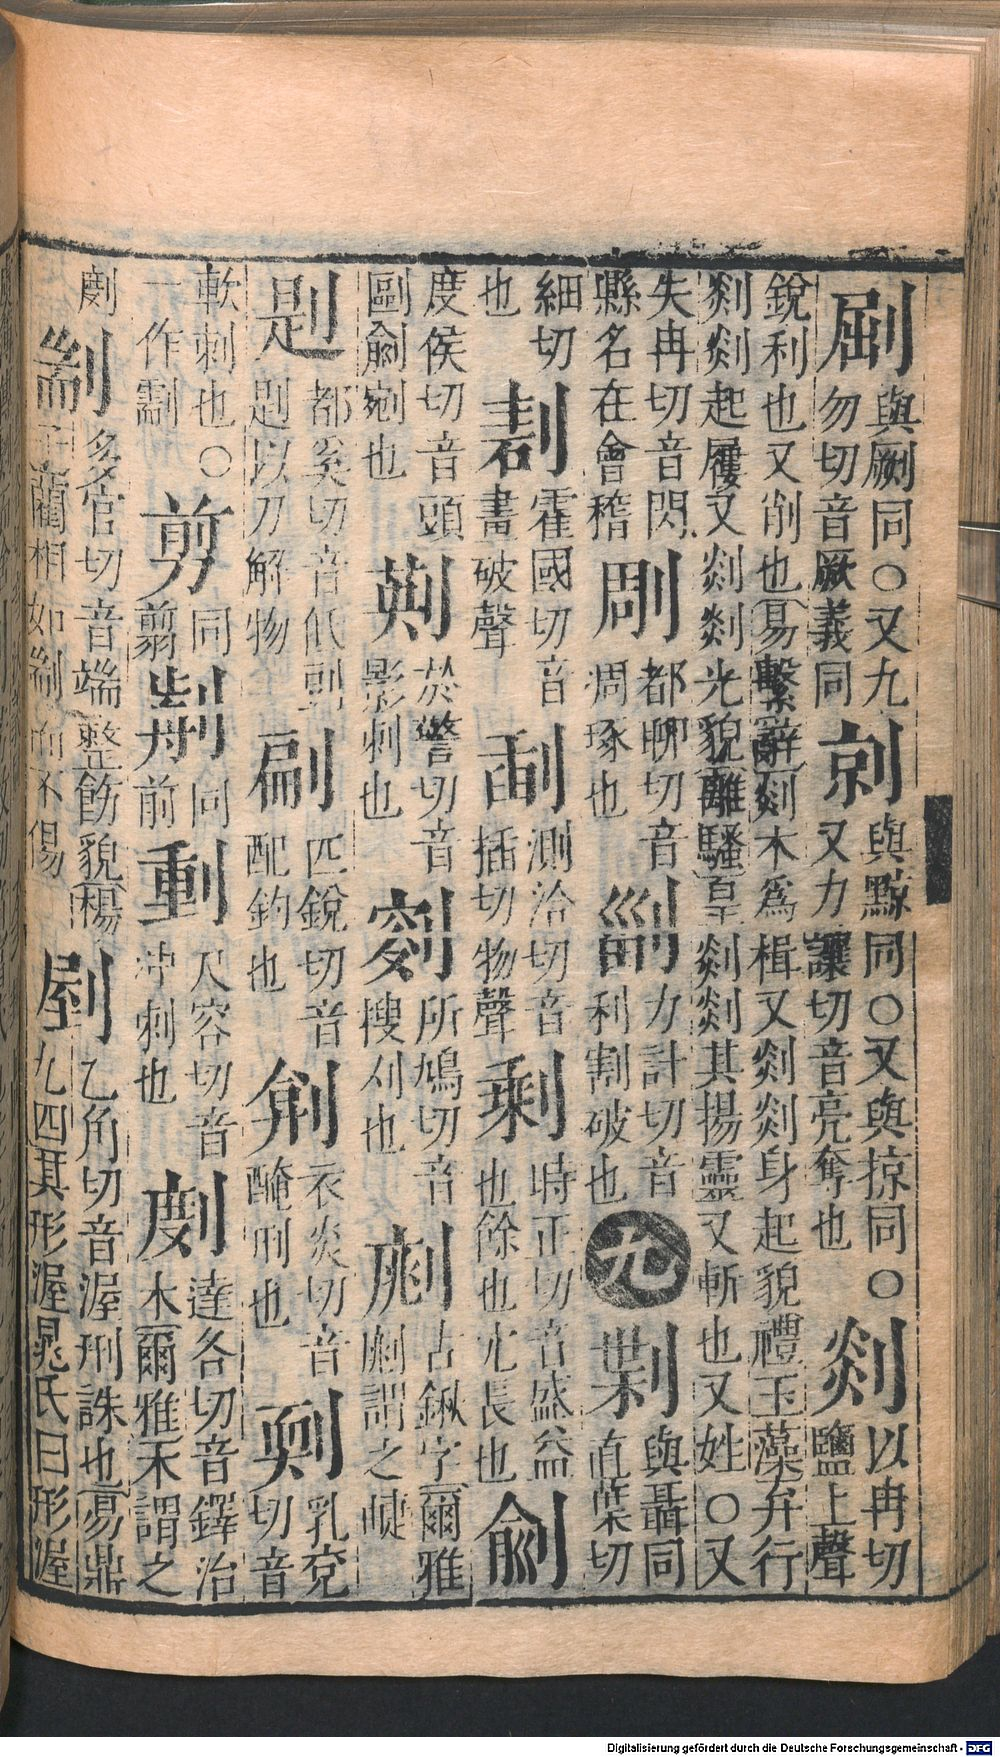 與劂同〇又九
勿切音厥義同
剠
與黥同〇又與掠同〇
又力讓切音亮奪也
剡
以冉切
鹽上聲
銳利也又削也易繫辭剡木爲楫又剡剡身起貌禮玉藻弁行
剡剡起屨又剡剡光貌離騷皇剡剡其揚靈又斬也又姓〇又
失冉切音閃
縣名在會稽
都聊切音
凋琢也
力計切音
利割破也
九
與聶同
直葉切
細切
也
霍國切音
畫破聲
測洽切音
插切物聲
剩
時正切音盛益
也餘也尤長也
度侯切音頭
剜也
於警切音
影刺也
所鳩切音
搜刈也
古鍬字爾雅
謂之疀
都奚切音低
以刀解物
匹銳切音
配鈎也
衣炎切音
醃刑也
乳兗
切音
軟刺也〇
一作
剪
同
翦
同
前
尺容切音
沖刺也
剫
達各切音鐸治
木爾雅木謂之
剫
剬
多官切音端整飭貌揚
子藺相如剬而不傷
剭
乙角切音渥刑誅也易鼎
九四其形渥晁氏曰形渥
Digitalisierung gefördert durch die Deutsche Forschungsgemeinschaft - DFG